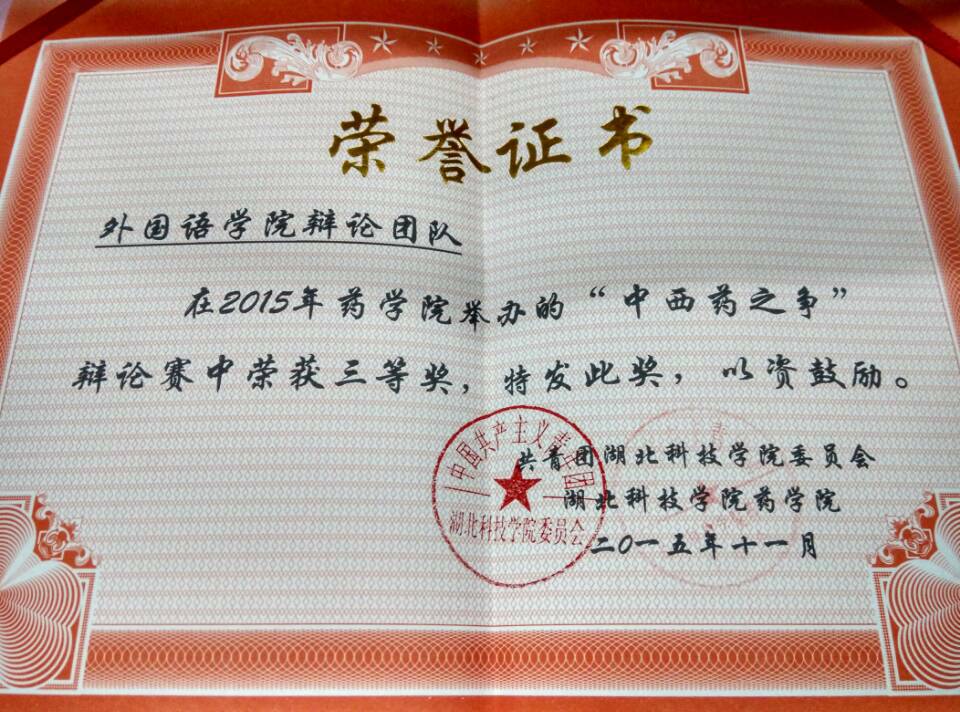 荣誉证书
外国语学院辩论团队
在2015年药学院举办的“中西药之争”
辩论赛中荣获三等奖，特发此奖，以资鼓励。
共青团湖北科技学院委员会
湖北科技学院药学院
二〇一五年十一月
中国共产主义青年团
湖北科技学院委员会